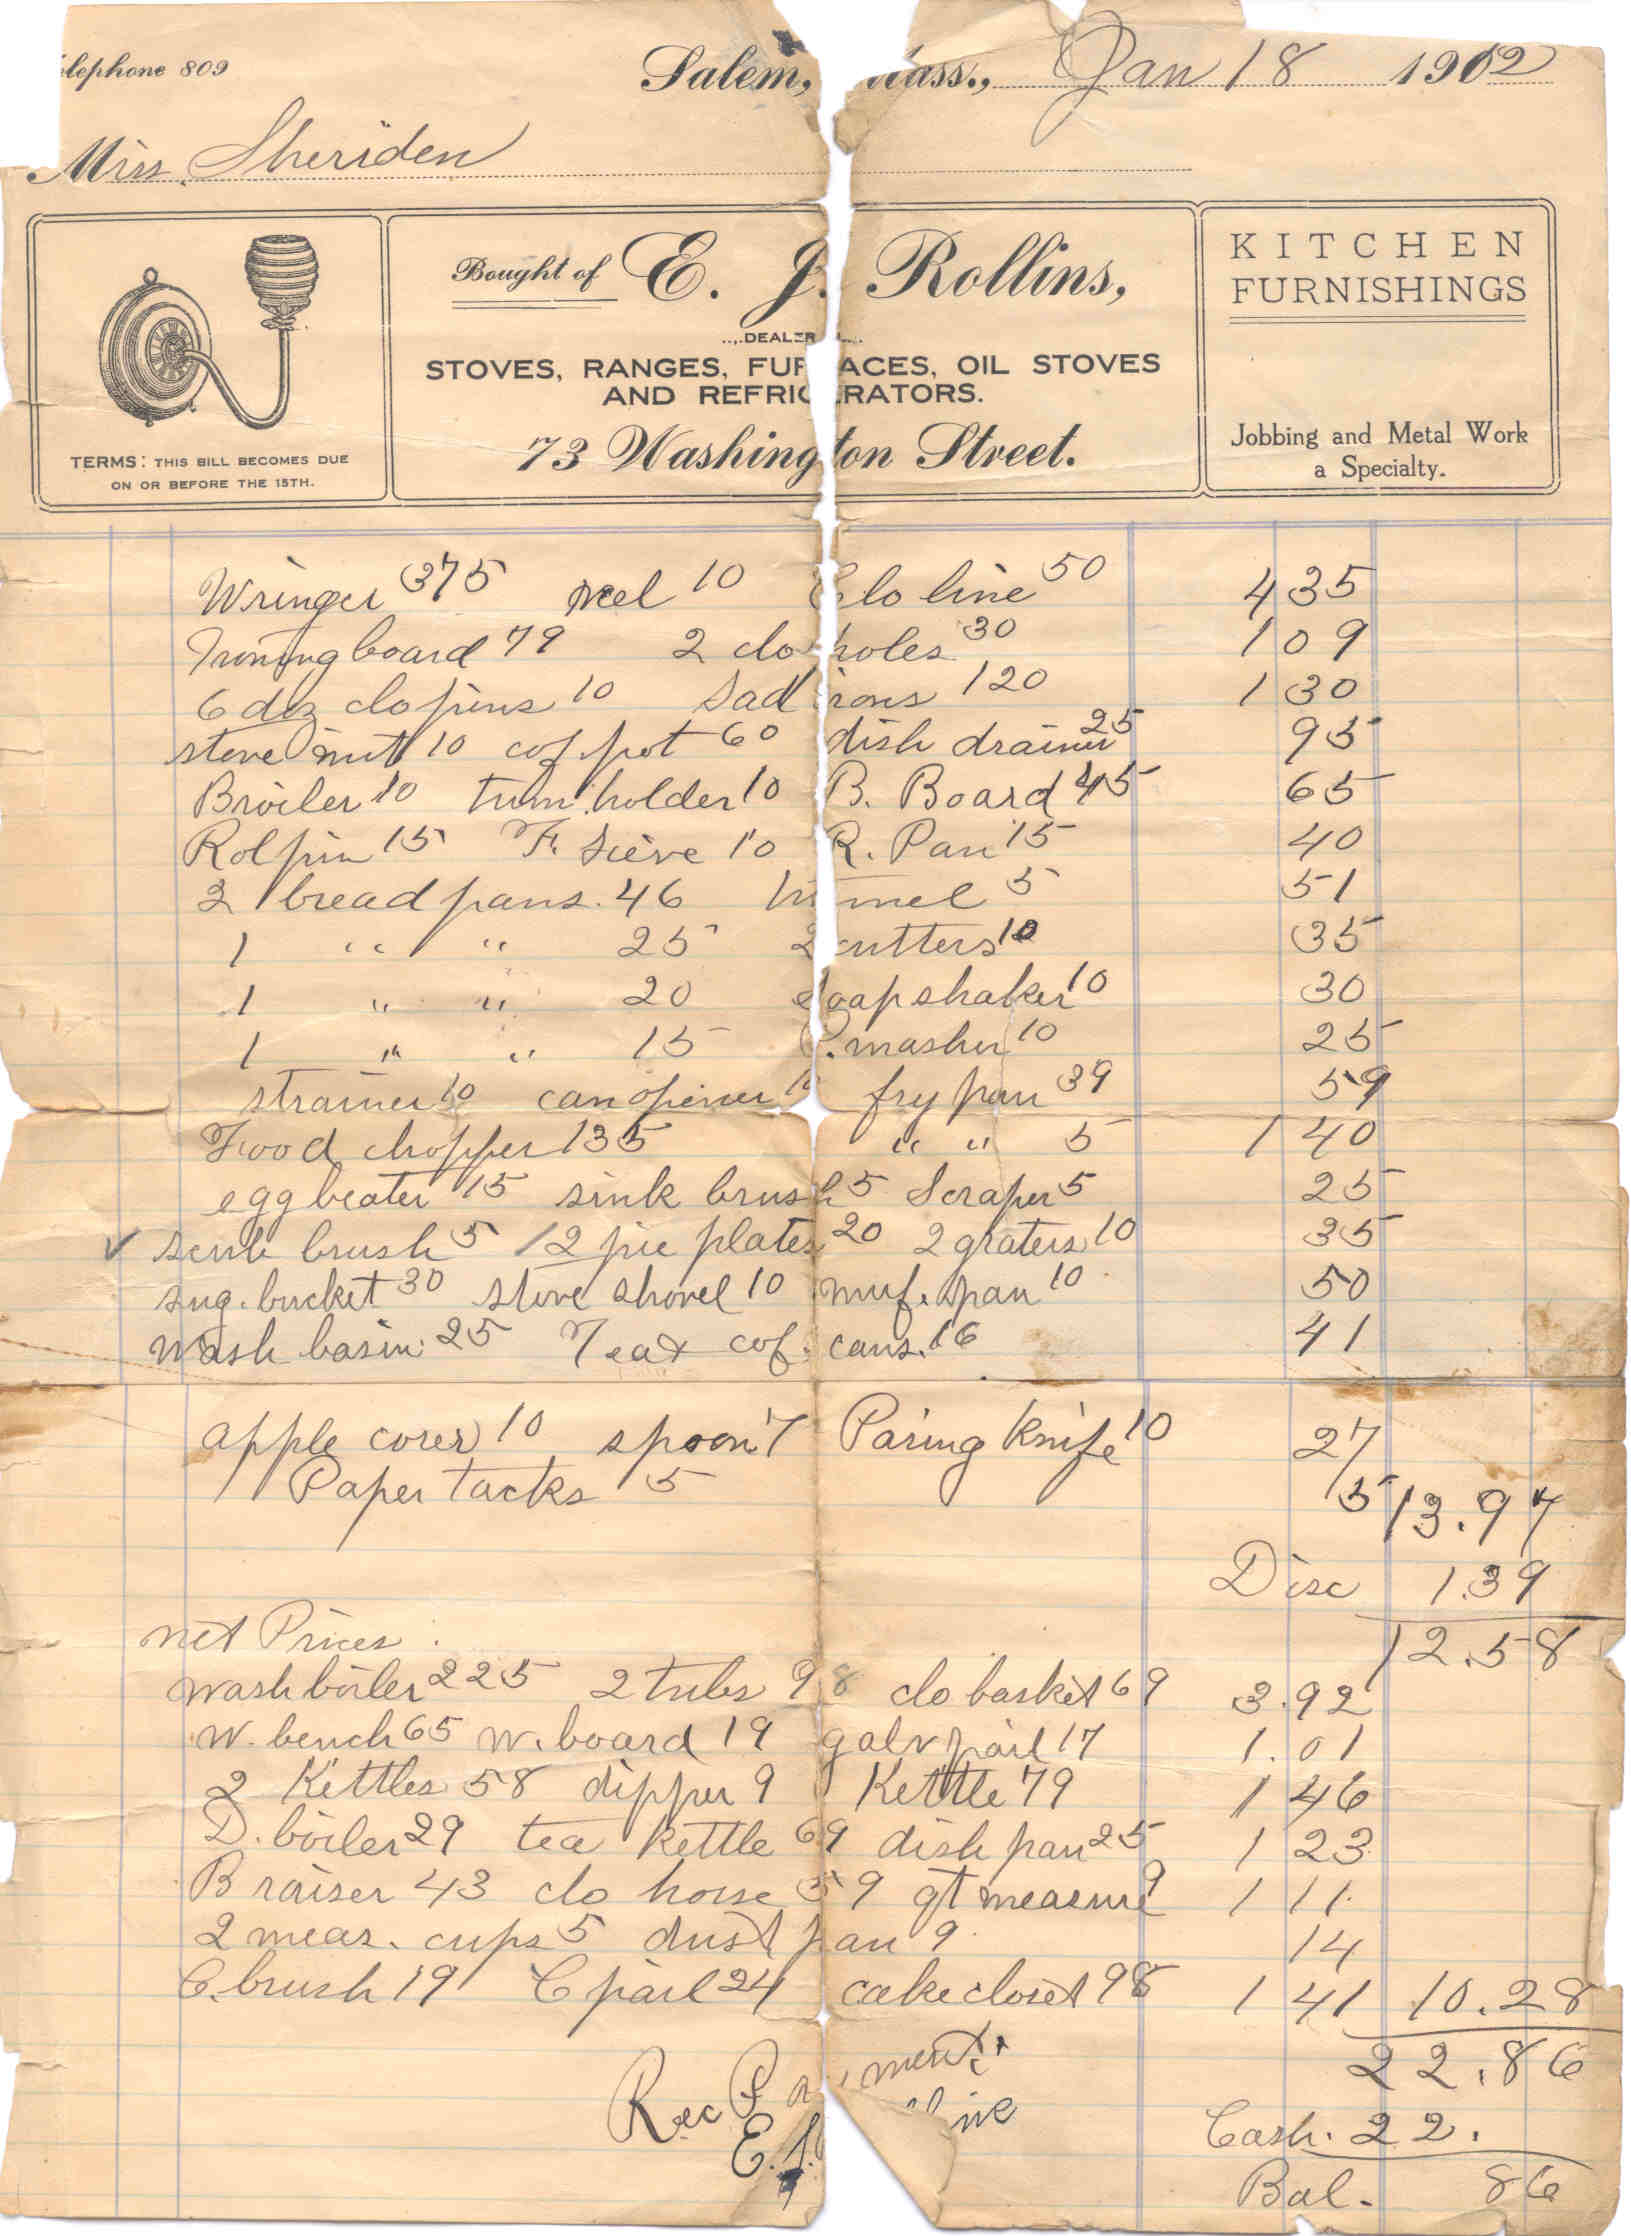 elephone 809 Salem, Mass., Jan 18 1902
Miss. Sheriden
Bought of E. J. Rollins,
....DEALER
STOVES, RANGES, FURNACES, OIL STOVES
AND REFRIGERATORS.
73 Washington Street.
TERMS: THIS BILL BECOMES DUE
ON OR BEFORE THE 15TH.
KITCHEN
FURNISHINGS
Jobbing and Metal Work
a Specialty.
Wringer 375 reel 10 Clo line 50 4 35
Ironing board 79 2 clo poles 30 1 09
6 doz clo pins 10 Sad irons 120 1 30
stove mit 10 cof pot 60 dish drainer 25 95
Broiler 10 tum. holder 10 B. Board 45 65
Rol pin 15 F. Sieve 10 R. Pan 15 40
2 bread pans. 46 5 51
1 " " 25 2 cutters 10 35
1 " " 20 Soap shaker 10 30
1 " " 15 P. masher 10 25
strainer 10 can opener 10 fry pan 39 59
Food chopper 135 " " 5 1 40
egg beater 15 sink brush 5 Scraper 5 25
✓ scrub brush 5 12 pie plates 20 2 graters 10 35
sug. bucket 30 stove shovel 10 muf. pan 10 50
Wash basin 25 Tea & cof. cans. 16 41
apple corer 10 spoon 7 Paring Knife 10 27
Paper tacks 5 5 13.97
Disc 1.39
net Prices. 12.58
wash boiler 225 2 tubs 98 clo basket 69 3.92
W. bench 65 W. board 19 galv pail 17 1.01
2 Kettles 58 dipper 9 Kettle 79 1 46
D. boiler 29 tea kettle 69 dish pan 25 1 23
B raiser 43 clo horse 59 qt measure 9 1 11
2 meas. cups 5 dust pan 9 14
C. brush 19 C pail 24 cake closet 98 1 41 10.28
22.86
Rec Payment.
E. J.
Cash. 22.
Bal. 86